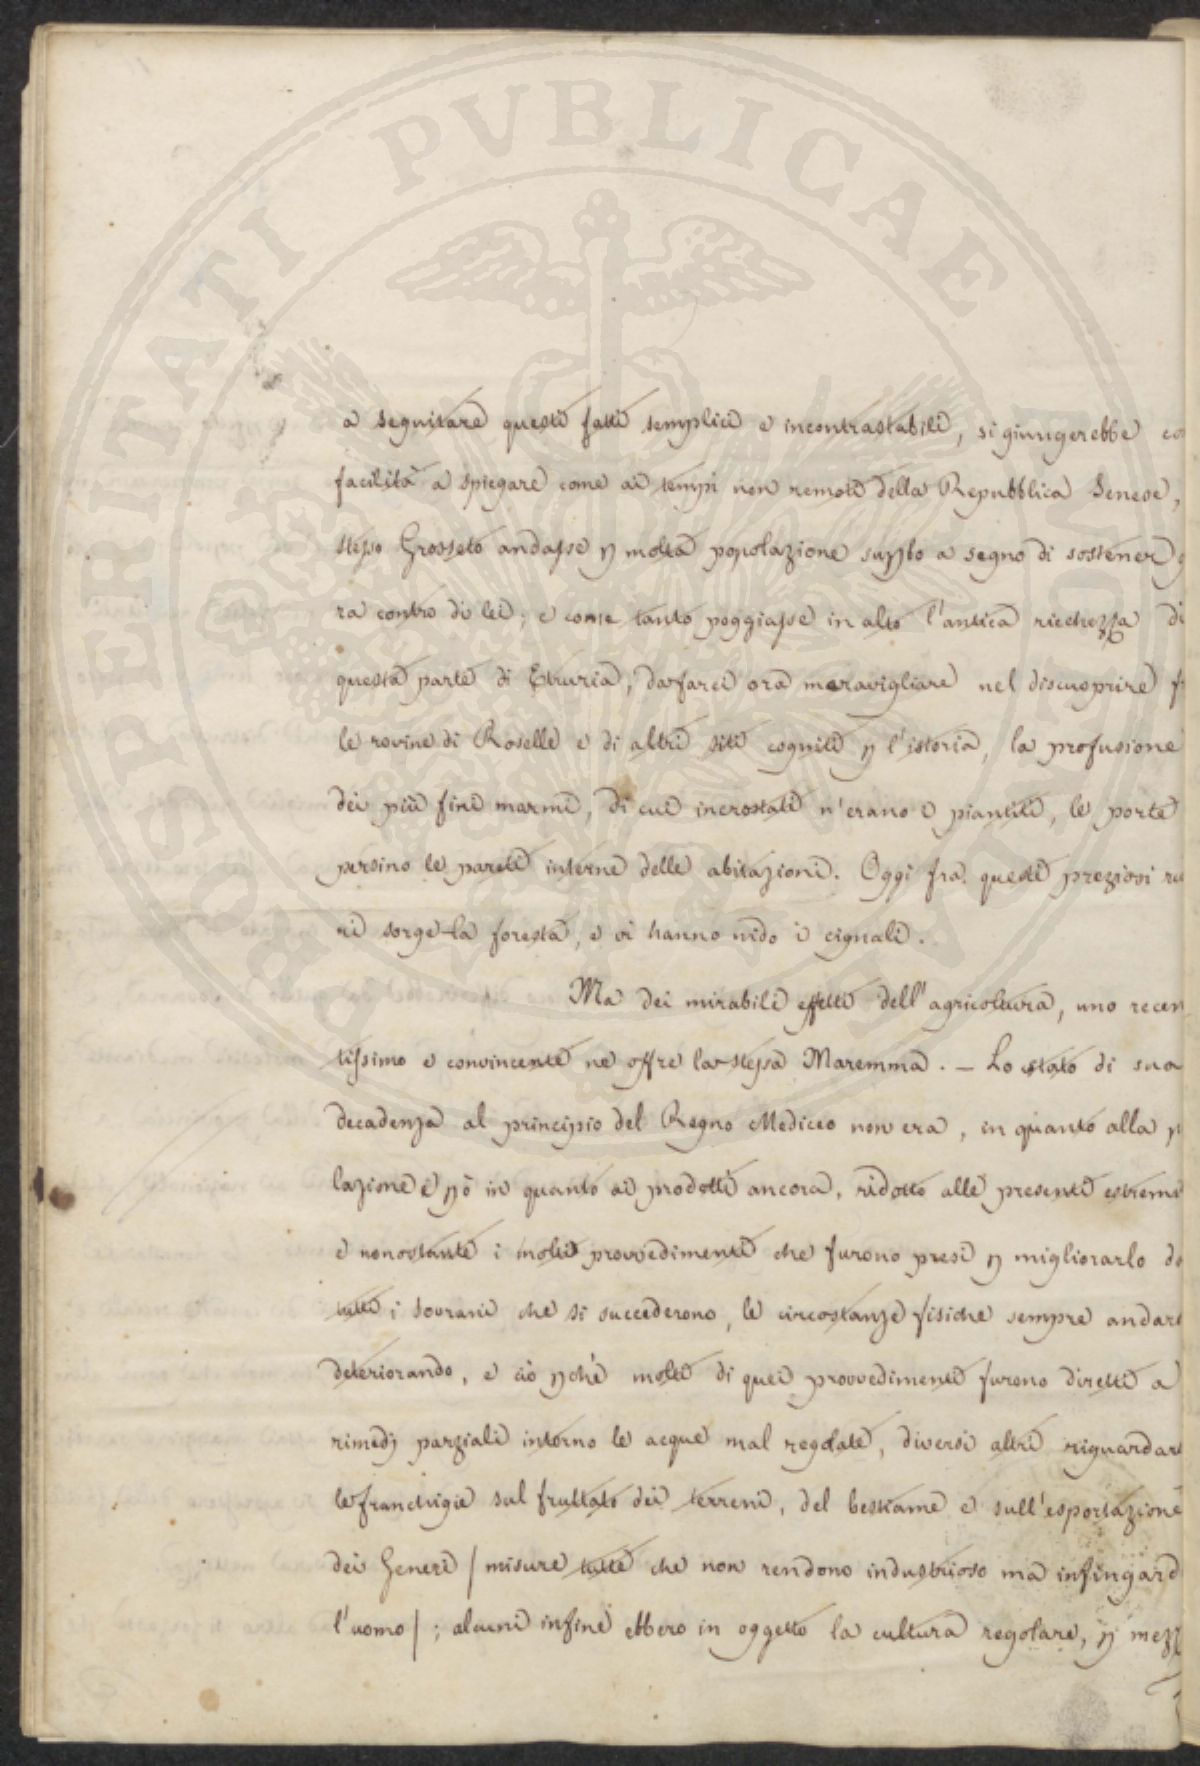 PROSPERITATI PVBLICAE
a seguitare questi fatti semplici e incontrastabili, si giungerebbe co
facilità a spiegare come ai tempi non remoti della Repubblica Senese,
stesso Grosseto andasse p molta popolazione supbo a segno di sostener g
ra contro di lei; e come tanto poggiasse in alto l'antica ricchezza di
questa parte di Etruria, da farci ora maravigliare nel discuoprire fr
le rovine di Roselle e di altri siti cogniti p l'istoria, la profusione
dei più fini marmi, di cui incrostati n'erano i piantiti, le porte
persino le pareti interne delle abitazioni. Oggi fra questi preziosi ru
ri sorge la foresta, e vi hanno nido i cignali.
Ma dei mirabili effetti dell'agricoltura, uno recen
tissimo e convincente ne offre la stessa Maremma. – Lo stato di sua
decadenza al principio del Regno Mediceo non era, in quanto alla p
lazione e pò in quanto ai prodotti ancora, ridotto alle presenti estremi
e nonostante i molti provvedimenti che furono presi p migliorarlo da
tutti i Sovrani che si succederono, le circostanze fisiche sempre andaro
deteriorando, e ciò pchè molti di quei provvedimenti furono diretti a
rimedj parziali intorno le acque mal regolate, diversi altri riguardaro
le franchigie sul fruttato dei terreni, del bestiame e sull'esportazione
dei Generi / misure tutte che non rendono industrioso ma infingard
l'uomo /; alcuni infine ebbero in oggetto la cultura regolare, p mezz